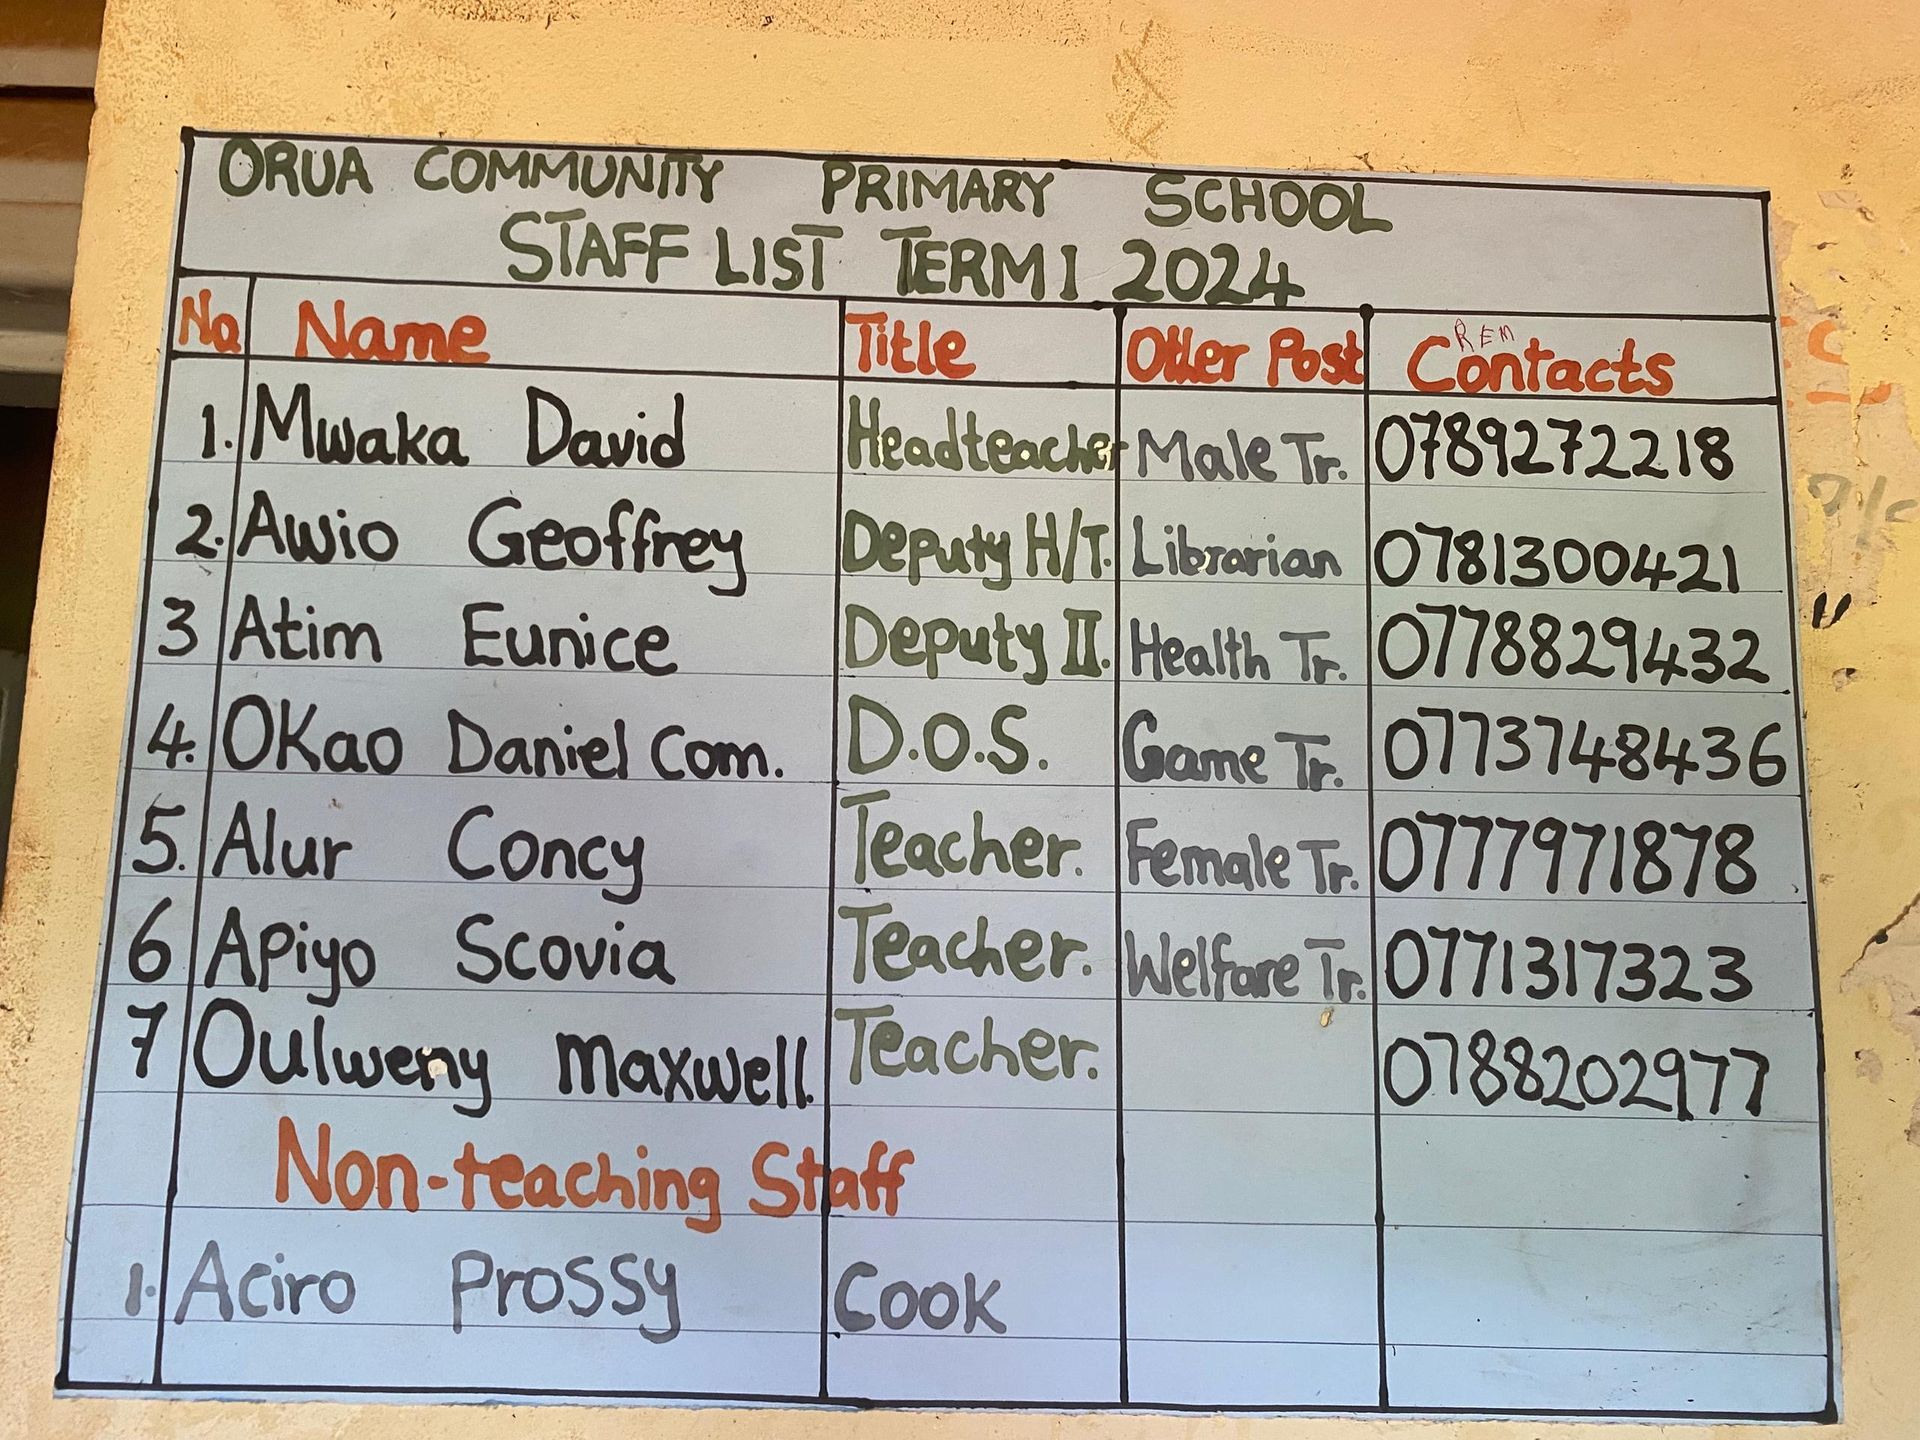 ORUA COMMUNITY PRIMARY SCHOOL
STAFF LIST TERM I 2024
No. Name Title Other Post Contacts
REM
1. Mwaka David Headteacher Male Tr. 0789272218
2. Awio Geoffrey Deputy H/T. Librarian 0781300421
3 Atim Eunice Deputy II. Health Tr. 0778829432
4. OKao Daniel Com. D.O.S. Game Tr. 0773748436
5. Alur Concy Teacher. Female Tr. 0777971878
6 Apiyo Scovia Teacher. Welfare Tr. 0771317323
7 Oulweny Maxwell. Teacher. 0788202977
Non-teaching Staff
1. Aciro Prossy Cook